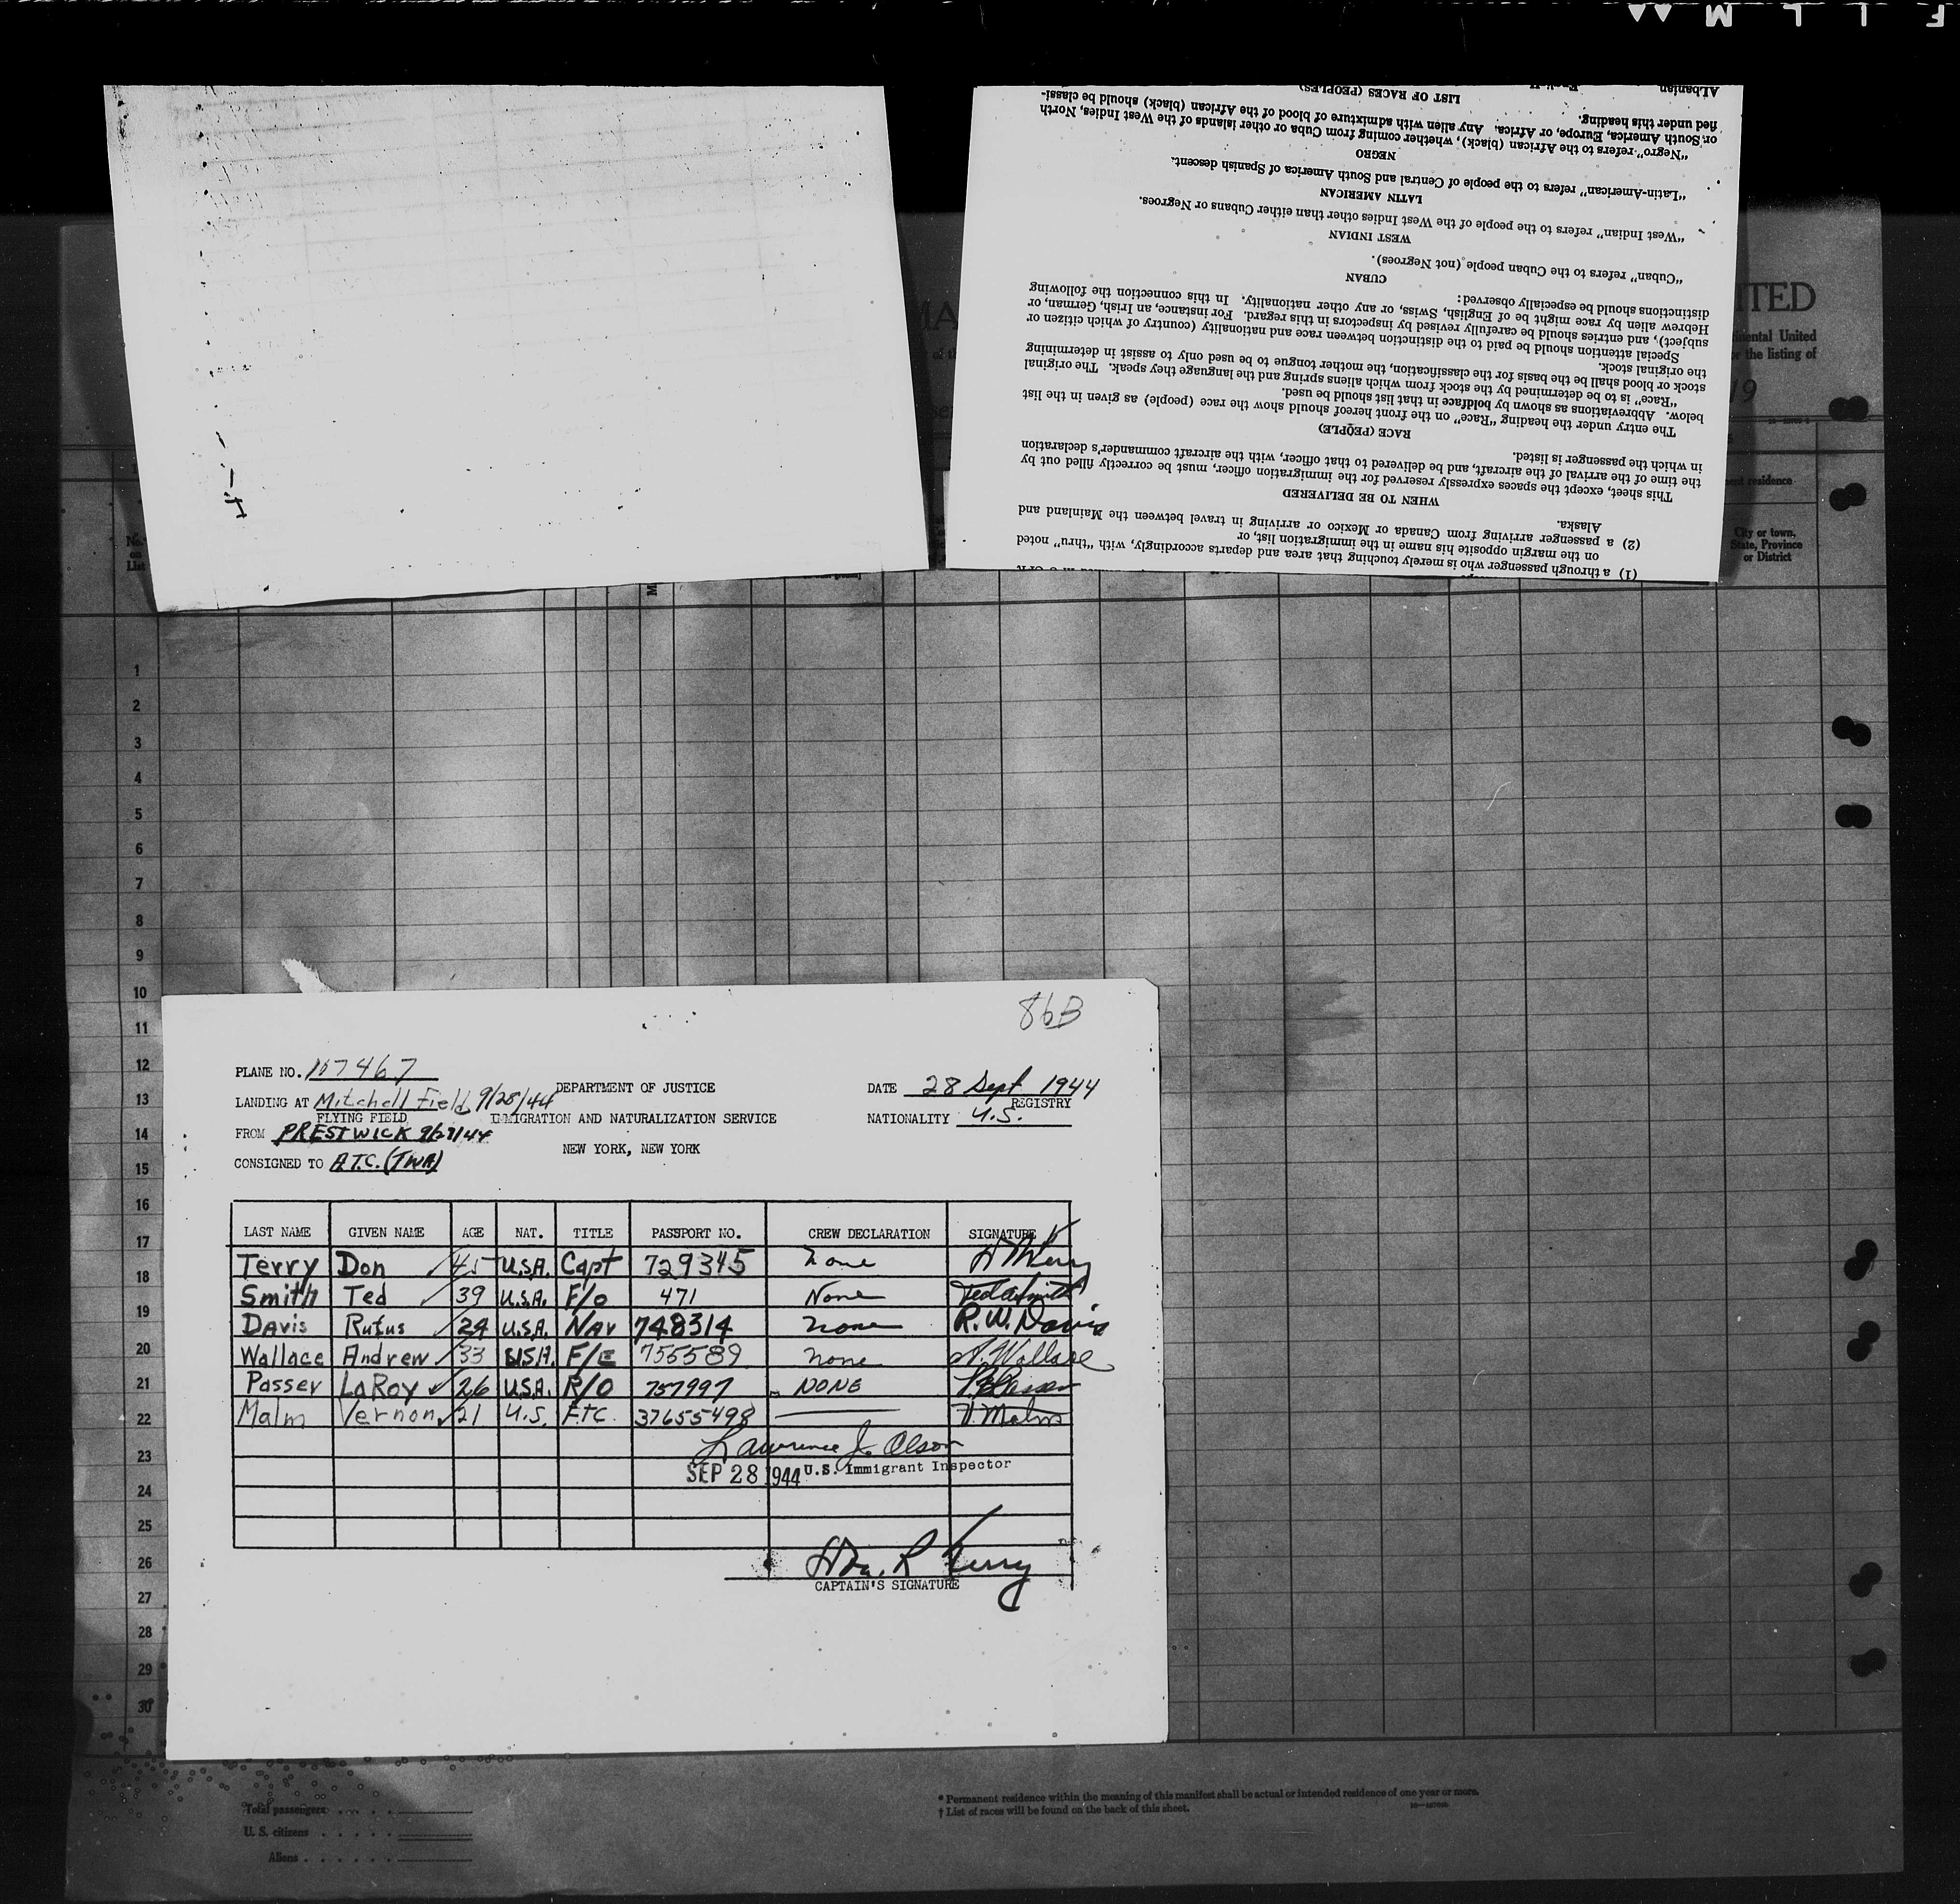 FILM
Albanian
LIST OF RACES (PEOPLES)
fied under this heading.
or South America, Europe, or Africa. Any alien with admixture of blood of the African (black) should be classi-
"Negro" refers to the African (black), whether coming from Cuba or other islands of the West Indies, North
NEGRO
"Latin-American" refers to the people of Central and South America of Spanish descent.
LATIN AMERICAN
"West Indian" refers to the people of the West Indies other than either Cubans or Negroes.
WEST INDIAN
"Cuban" refers to the Cuban people (not Negroes).
CUBAN
distinctions should be especially observed:
Hebrew alien by race might be of English, Swiss, or any other nationality. In this connection the following
subject), and entries should be carefully revised by inspectors in this regard. For instance, an Irish, German, or
Special attention should be paid to the distinction between race and nationality (country of which citizen or
the original stock.
stock or blood shall be the basis for the classification, the mother tongue to be used only to assist in determining
"Race" is to be determined by the stock from which aliens spring and the language they speak. The original
below. Abbreviations as shown by boldface in that list should be used.
The entry under the heading "Race" on the front hereof should show the race (people) as given in the list
RACE (PEOPLE)
in which the passenger is listed.
the time of the arrival of the aircraft, and be delivered to that officer, with the aircraft commander's declaration
This sheet, except the spaces expressly reserved for the immigration officer, must be correctly filled out by
WHEN TO BE DELIVERED
Alaska.
(2) a passenger arriving from Canada or Mexico or arriving in travel between the Mainland and
on the margin opposite his name in the immigration list, or
(1) a through passenger who is merely touching that area and departs accordingly, with "thru" noted
ITED
inental United
the listing of
19
residence
City or town,
State, Province
or District
No.
on
List
1
2
3
4
5
6
7
8
9
10
11
12
13
14
15
16
17
18
19
20
21
22
23
24
25
26
27
28
29
30
86B
PLANE NO. 107467
LANDING AT Mitchell Field 9/28/44
FLYING FIELD
FROM PRESTWICK 9/27/44
CONSIGNED TO A.T.C. (TWA)
DEPARTMENT OF JUSTICE
IMMIGRATION AND NATURALIZATION SERVICE
NEW YORK, NEW YORK
DATE 28 Sept 1944
REGISTRY
NATIONALITY U.S.
LAST NAME GIVEN NAME AGE NAT. TITLE PASSPORT NO. CREW DECLARATION SIGNATURE
Terry Don 45 U.S.A. Capt 729345 None
Smith Ted 39 U.S.A. F/O 471 None Ted Smith
Davis Rufus 24 U.S.A. Nav 748314 None R.W. Davis
Wallace Andrew 33 U.S.A. F/E 755589 None A. Wallace
Passer LaRoy 26 U.S.A. R/O 757997 NONE
Malm Vernon 21 U.S. F.T.C. 37655498 V. Malm
Lawrence J. Olson
SEP 28 1944 U.S. Immigrant Inspector
R Terry
CAPTAIN'S SIGNATURE
Total passengers
U. S. citizens
Aliens
* Permanent residence within the meaning of this manifest shall be actual or intended residence of one year or more.
† List of races will be found on the back of this sheet.